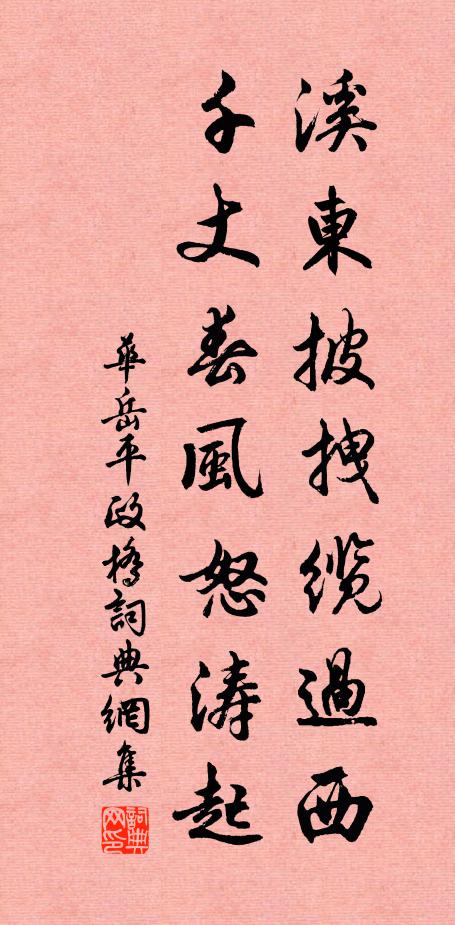 溪東披拽纜過西
千丈春風怒濤起
華岳平政橋詞典網集
詞典网印